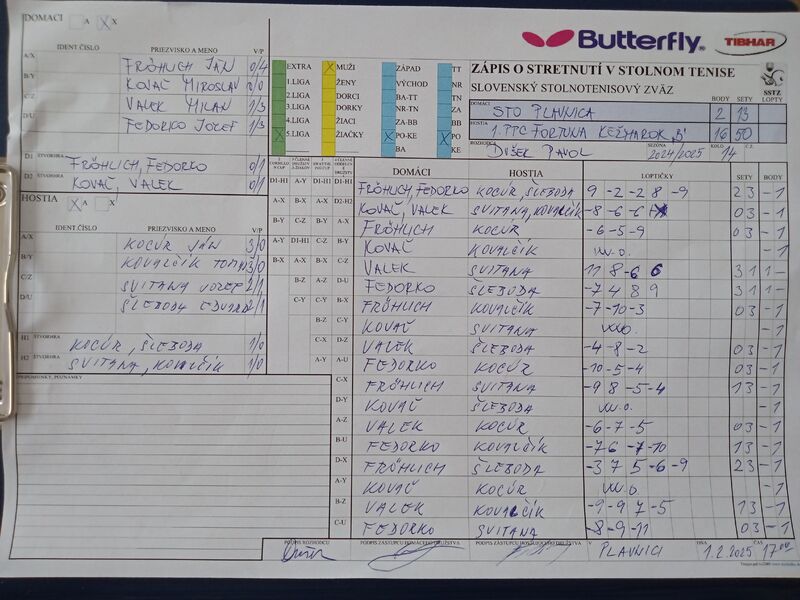 DOMÁCI A X X
IDENT ČÍSLO PRIEZVISKO A MENO V/P
A/X FRÖHLICH JÁN 0/4
B/Y KOVAČ MIROSLAV 0/0
C/Z VALEK MILAN 1/3
D/U FEDORKO JOZEF 1/3
D1 ŠTVORHRA FRÖHLICH, FEDORKO 0/1
D2 ŠTVORHRA KOVAČ, VALEK 0/1
HOSTIA X A X
IDENT ČÍSLO PRIEZVISKO A MENO V/P
A/X KOCÚR JÁN 3/0
B/Y KOVALČÍK TOMÁŠ 3/0
C/Z SVITANA JOZEF 2/1
D/U ŠLEBODA EDUARD 2/1
H1 ŠTVORHRA KOCÚR, ŠLEBODA 1/0
H2 ŠTVORHRA SVITANA, KOVALČÍK 1/0
PRIPOMIENKY, POZNÁMKY
EXTRA X MUŽI ZÁPAD TT
1.LIGA ŽENY VÝCHOD NR
2.LIGA DORCI BA-TT TN
3.LIGA DORKY NR-TN ZA
4.LIGA ŽIACI ZA-BB BB
X 5.LIGA ŽIAČKY X PO-KE X PO
BA KE
Butterfly TIBHAR
ZÁPIS O STRETNUTÍ V STOLNOM TENISE
SLOVENSKÝ STOLNOTENISOVÝ ZVÄZ
SSTZ
BODY SETY LOPTY
DOMÁCI STO PLAVNICA 2 13
HOSTIA 1. PTC FORTUNA KEŽMAROK "B" 16 50
ROZHODCA DUŠEK PAVOL SEZÓNA 2024/2025 KOLO 14 Č.Z.
DOMÁCI HOSTIA LOPTIČKY SETY BODY
D1-H1 A-Y D1-H1 D1-H1 FRÖHLICH, FEDORKO KOCÚR, ŠLEBODA 9 -2 -2 8 -9 2 3 - 1
A-X B-X A-X D2-H2 KOVAČ, VALEK SVITANA, KOVALČÍK -8 -6 -6 0 3 - 1
B-Y C-Z B-Y A-X FRÖHLICH KOCÚR -6 -5 -9 0 3 - 1
A-Y D1-H1 C-Z B-Y KOVAČ KOVALČÍK w.o. - 1
B-X A-X B-X C-Z VALEK SVITANA 11 8 -6 6 3 1 1 -
B-Z A-Z D-U FEDORKO ŠLEBODA -7 4 8 9 3 1 1 -
C-Y C-Y B-X A-Y FRÖHLICH KOVALČÍK -7 -10 -3 0 3 - 1
B-Z C-Y B-Z KOVAČ SVITANA w.o. - 1
C-X D-Z C-D VALEK ŠLEBODA -4 -8 -2 0 3 - 1
A-Y A-U D-X FEDORKO KOCÚR -10 -5 -4 0 3 - 1
C-X FRÖHLICH SVITANA -9 8 -5 -4 1 3 - 1
D-Y KOVAČ ŠLEBODA w.o. - 1
A-Z VALEK KOCÚR -6 -7 -5 0 3 - 1
B-U FEDORKO KOVALČÍK -7 6 -7 -10 1 3 - 1
D-X FRÖHLICH ŠLEBODA -3 7 5 -6 -9 2 3 - 1
A-Y KOVAČ KOCÚR w.o. - 1
B-Z VALEK KOVALČÍK -9 -9 7 -5 1 3 - 1
C-U FEDORKO SVITANA -8 -9 -11 0 3 - 1
PODPIS ROZHODCU PODPIS ZÁSTUPCU DOMÁCEHO DRUŽSTVA PODPIS ZÁSTUPCU HOSŤUJÚCEHO DRUŽSTVA V PLAVNICI DŇA 1.2.2025 ČAS 17:00